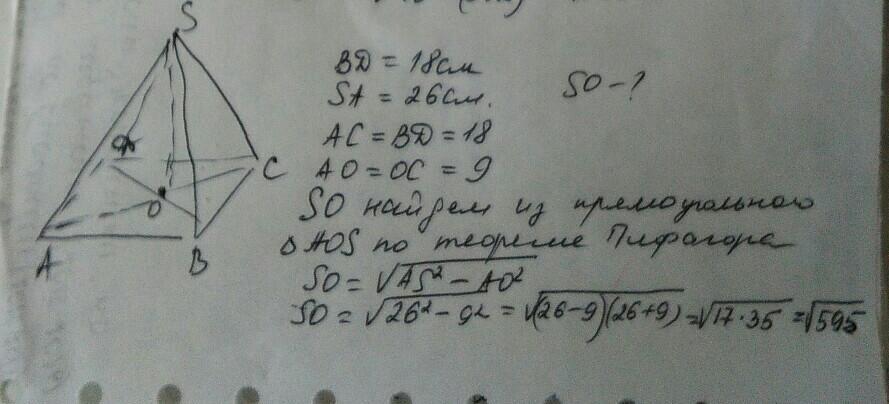 S
BD = 18см
SA = 26см.
SO - ?
AC = BD = 18
AO = OC = 9
C
O
A
B
SO найдем из прямоугольного
△AOS по теореме Пифагора
SO = √AS² - AO²
SO = √26² - 9² = √(26-9)(26+9) = √17·35 = √595